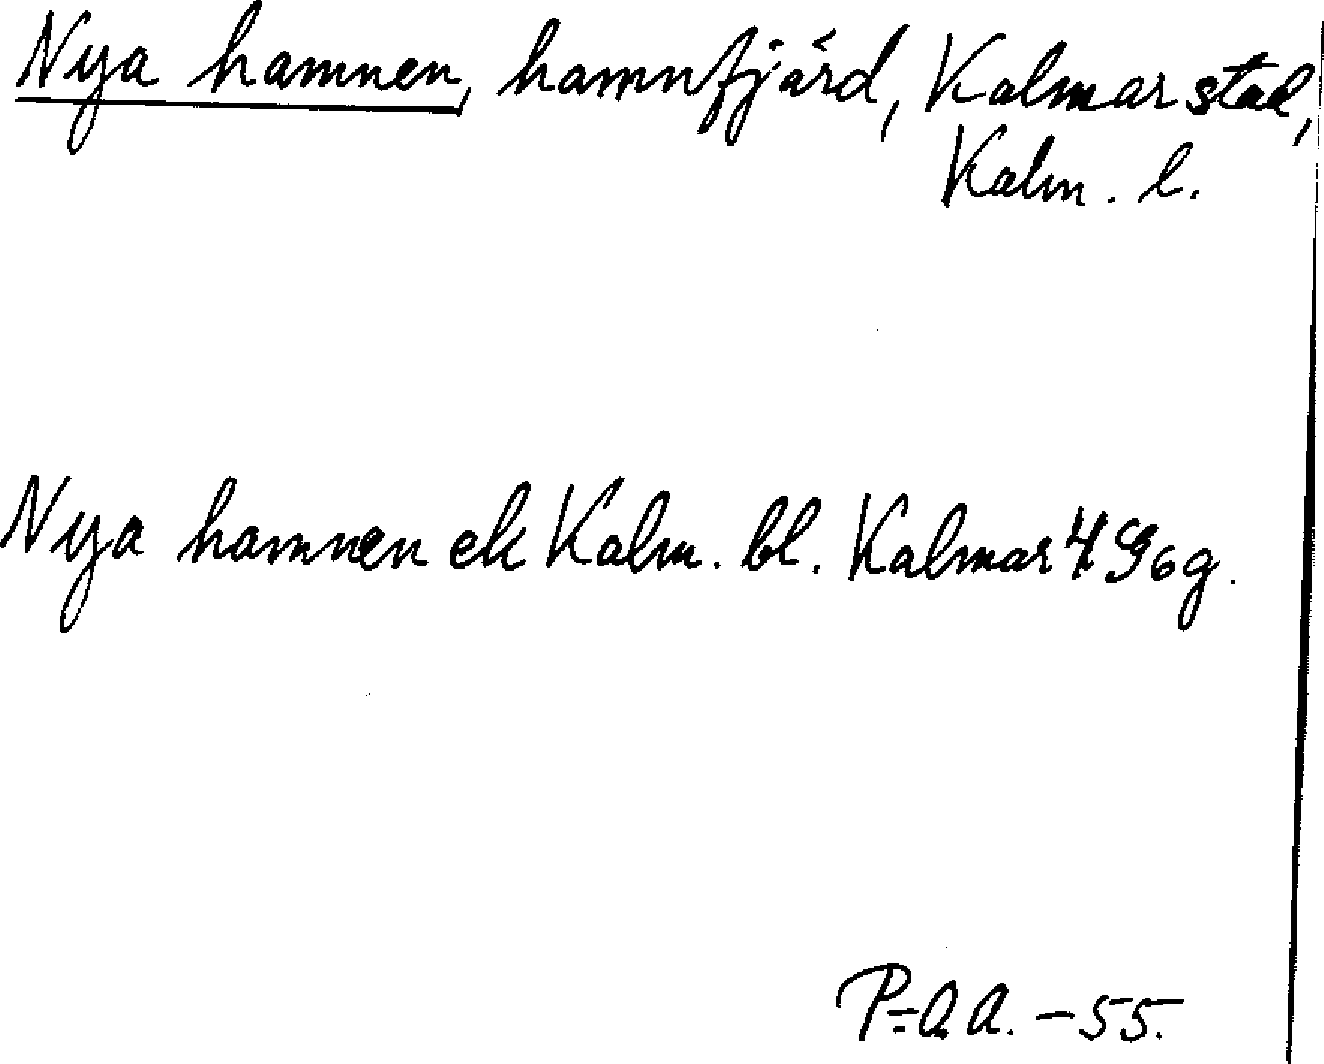 Nya hamnen, hamnfjärd, Kalmar stad,
Kalm. l.
Nya hamnen ek Kalm. bl. Kalmar 4 G 6 g.
P-Q A. - 55.